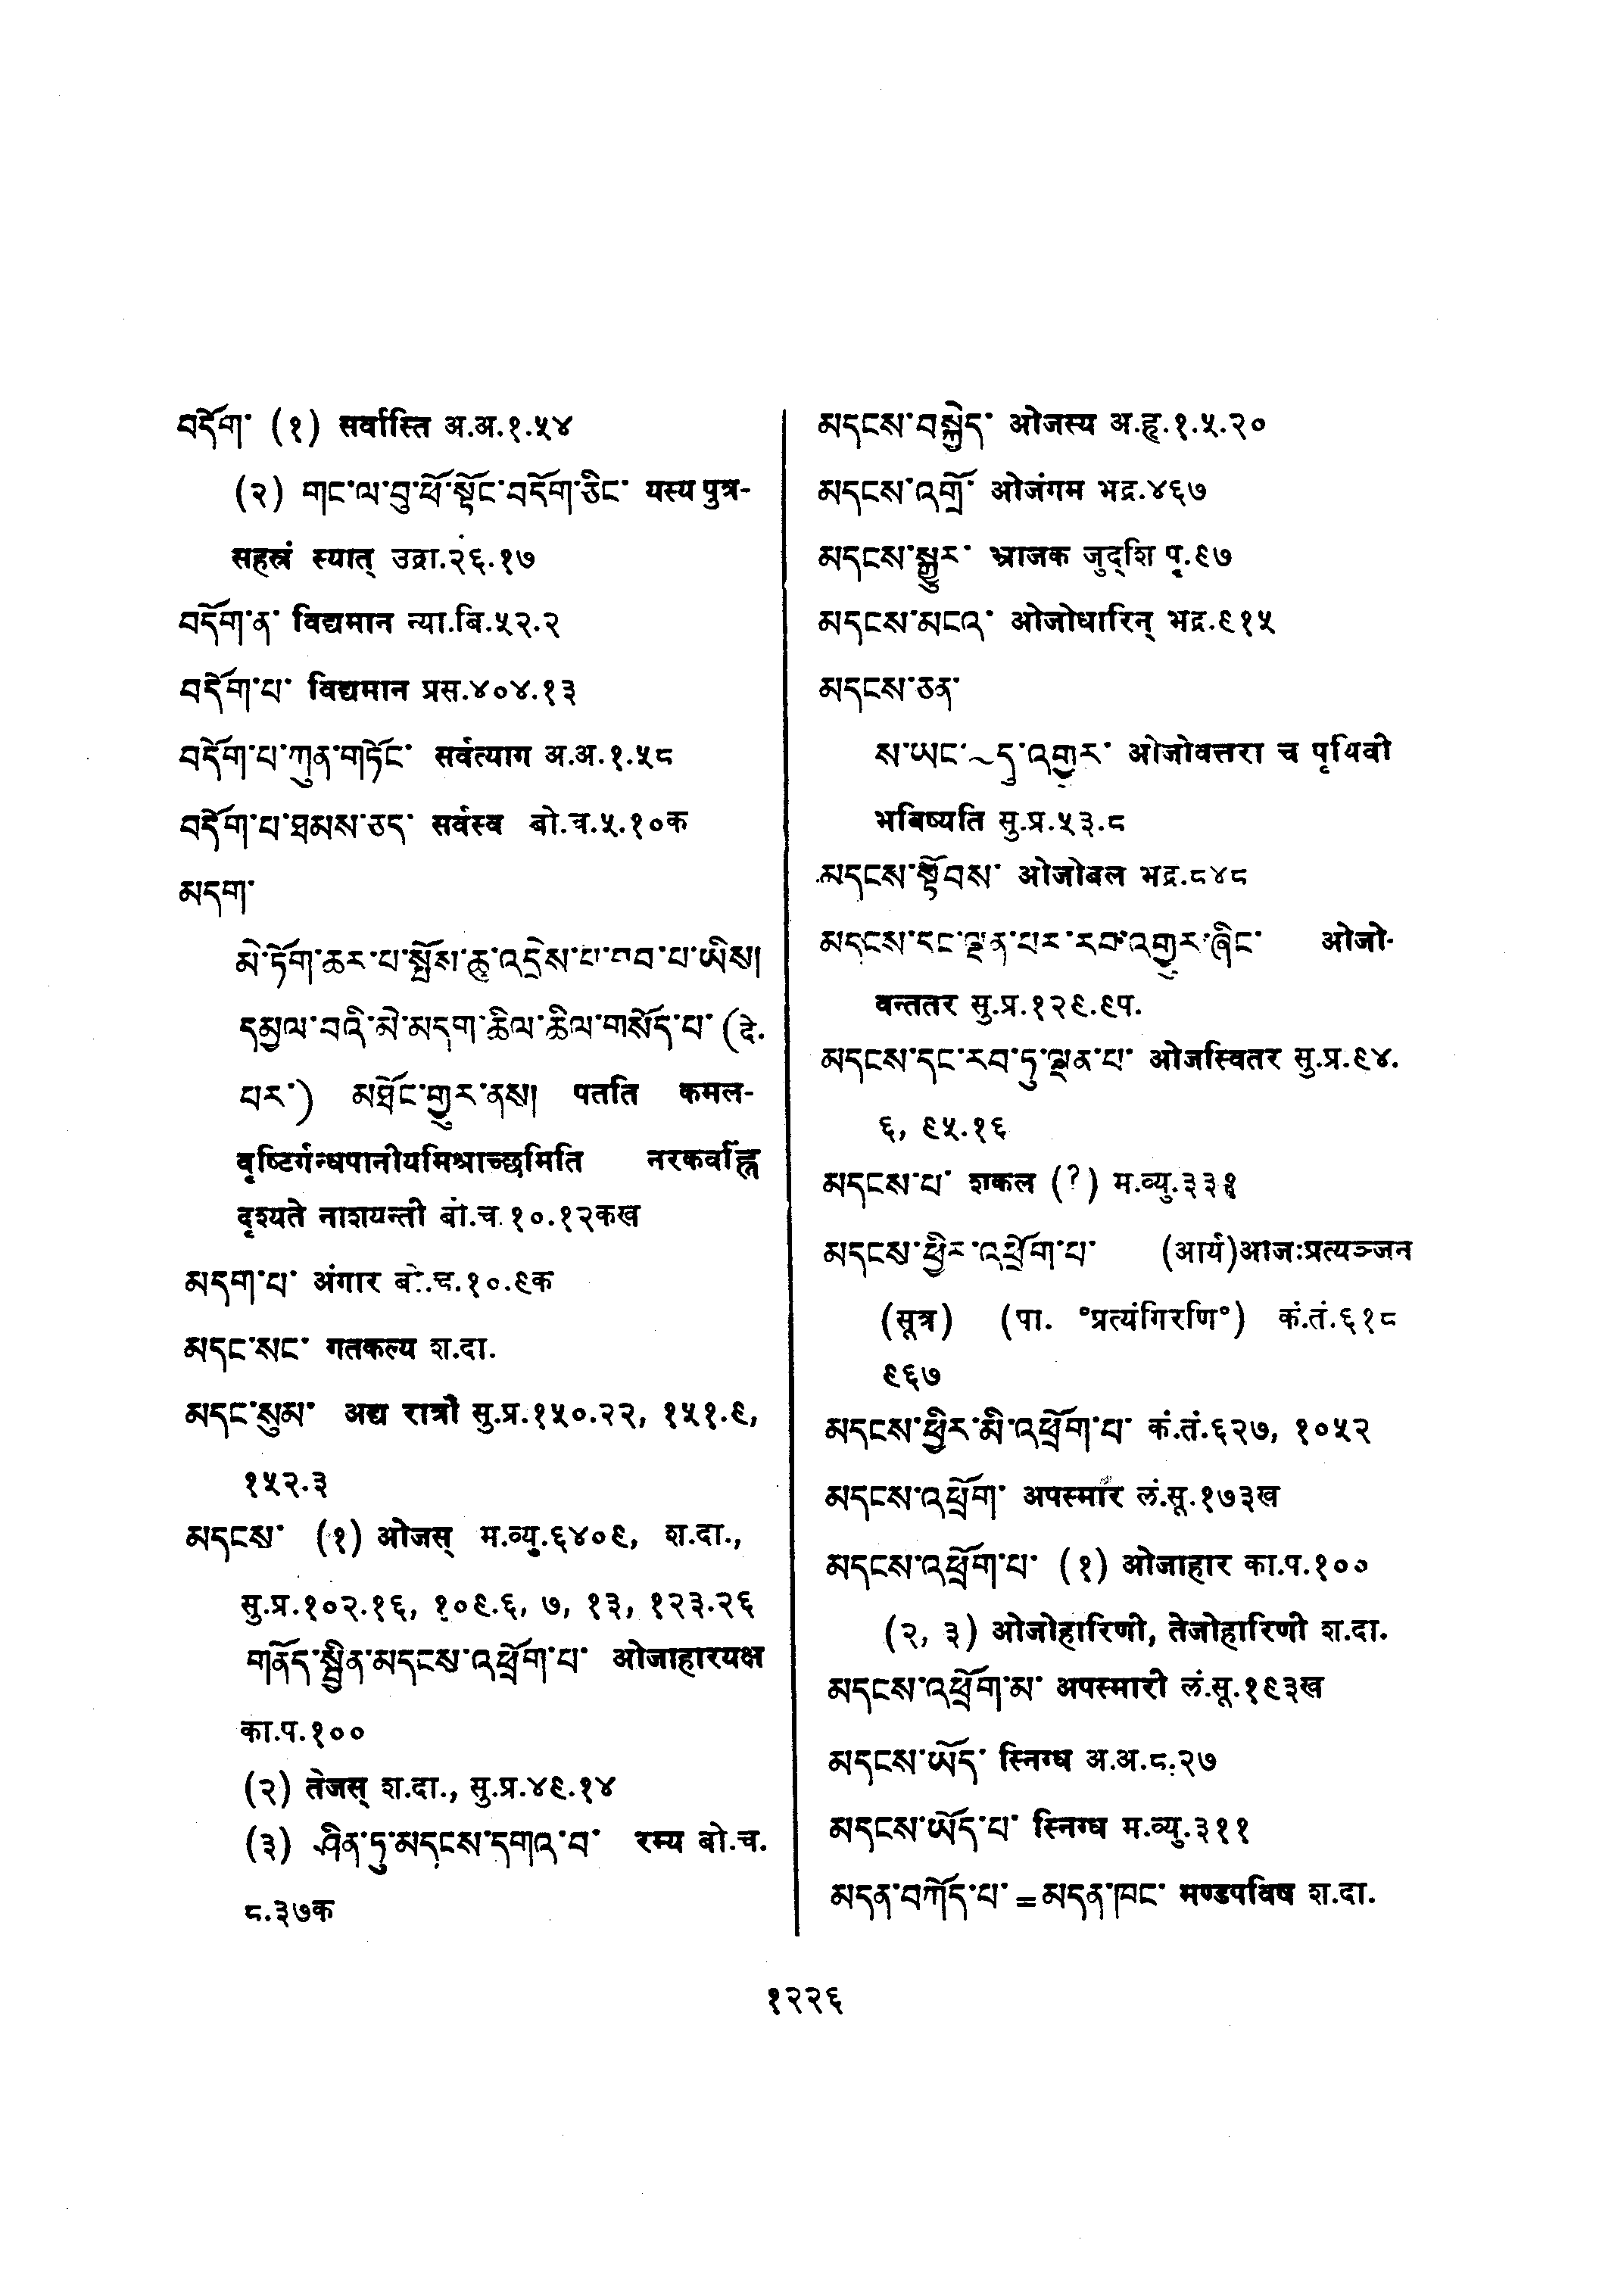 བདོག་ (१) सर्वास्ति अ.अ.१.५४
(२) གང་ལ་བུ་ཕོ་སྟོང་བདོག་ཅིང་ यस्य पुत्र-
सहस्रं स्यात् उद्रा.२६.१७
བདོག་ན་ विद्यमान न्या.बि.५२.२
བདོག་པ་ विद्यमान प्रस.४०४.१३
བདོག་པ་ཀུན་གཏོང་ सर्वत्याग अ.अ.१.५८
བདོག་པ་ཐམས་ཅད་ सर्वस्व बो.च.५.१०क
མདག་
མེ་ཏོག་ཆར་པ་སྤོས་ཆུ་འདྲེས་པ་བབ་པ་ཡིས།
དམྱལ་བའི་མེ་མདག་ཆིལ་ཆིལ་གསོད་པ་ (दे.
པར་) མཐོང་གྱུར་ནས། पतति कमल-
वृष्टिर्गन्धपानीयमिश्राच्छमिति नरकवह्निं
दृश्यते नाशयन्ती बो.च.१०.१२कख
མདག་པ་ अंगार बो.च.१०.९क
མདང་སང་ गतकल्य श.दा.
མདང་སུམ་ अद्य रात्रौ सु.प्र.१५०.२२, १५१.९,
१५२.३
མདངས་ (१) ओजस् म.व्यु.६४०९, श.दा.,
सु.प्र.१०२.१६, १०९.६, ७, १३, १२३.२६
གནོད་སྦྱིན་མདངས་འཕྲོག་པ་ ओजाहारयक्ष
का.प.१००
(२) तेजस् श.दा., सु.प्र.४९.१४
(३) ཤིན་ཏུ་མདངས་དགའ་བ་ रम्य बो.च.
८.३७क
མདངས་བསྐྱེད་ ओजस्य अ.हृ.१.५.२०
མདངས་འགྲོ་ ओजंगम भद्र.४६७
མདངས་སྒྱུར་ भ्राजक जुद्शि पृ.९७
མདངས་མངའ་ ओजोधारिन् भद्र.९१५
མདངས་ཅན་
ས་ཡང་~དུ་འགྱུར་ ओजोवत्तरा च पृथिवी
भविष्यति सु.प्र.५३.८
མདངས་སྟོབས་ ओजोबल भद्र.८४८
མདངས་དང་ལྡན་པར་རབ་འགྱུར་ཞིང་ ओजो-
वन्ततर सु.प्र.१२९.९प.
མདངས་དང་རབ་ཏུ་ལྡན་པ་ ओजस्वितर सु.प्र.९४.
६, ९५.१६
མདངས་པ་ शकल (?) म.व्यु.३३१
མདངས་ཕྱིར་འཕྲོག་པ་ (आर्य)ओजःप्रत्यञ्जन
(सूत्र) (पा. °प्रत्यंगिरणि°) कं.तं.६१८
९६७
མདངས་ཕྱིར་མི་འཕྲོག་པ་ कं.तं.६२७, १०५२
མདངས་འཕྲོག་ अपस्मार लं.सू.१७३ख
མདངས་འཕྲོག་པ་ (१) ओजाहार का.प.१००
(२, ३) ओजोहारिणी, तेजोहारिणी श.दा.
མདངས་འཕྲོག་མ་ अपस्मारी लं.सू.१९३ख
མདངས་ཡོད་ स्निग्ध अ.अ.८.२७
མདངས་ཡོད་པ་ स्निग्ध म.व्यु.३११
མདན་བཀོད་པ་=མདན་ཁང་ मण्डपविष श.दा.
१२२६